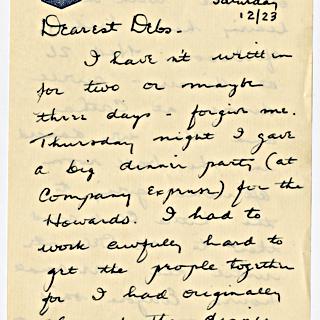 Saturday
12/23
Dearest Debs.
I haven't written
for two or maybe
three days - forgive me.
Thursday night I gave
a big dinner party (at
Company Expense) for the
Howards. I had to
work awfully hard to
get the people together
for I had originally